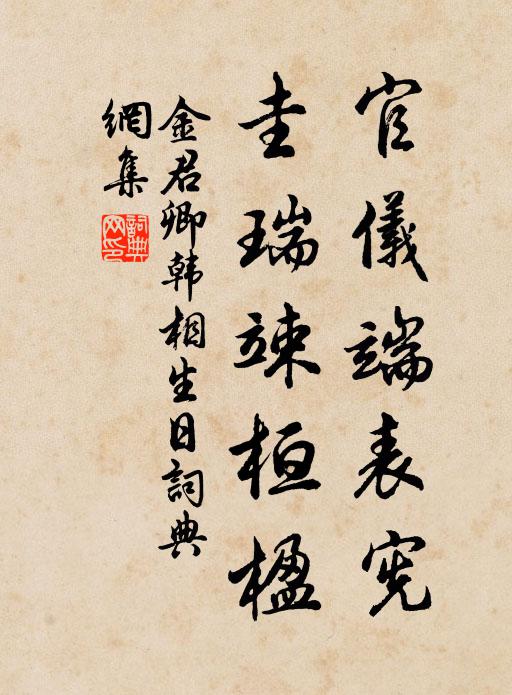 官儀端表宪
圭瑞竦桓楹
金君卿韩相生日詞典
網集
詞典
网印